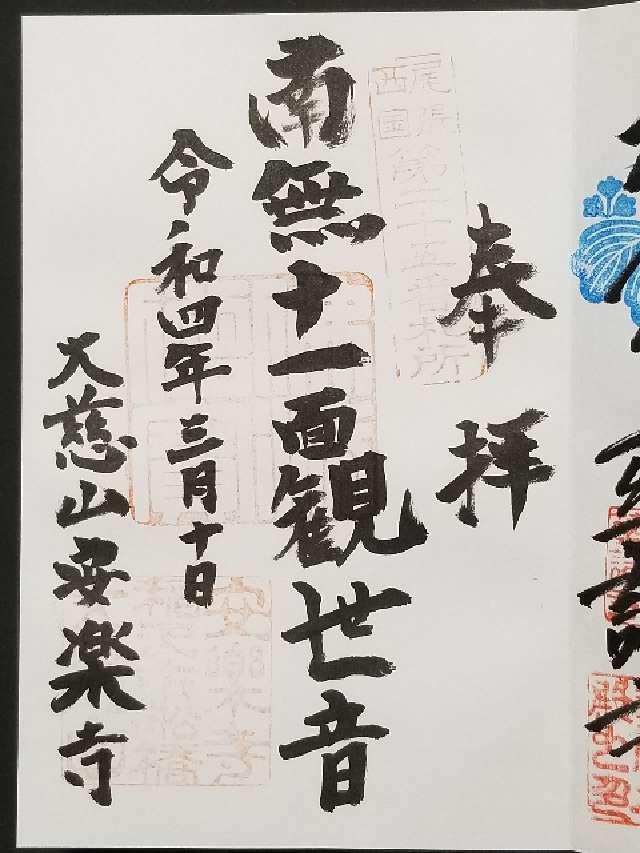 奉拝
尾張西国第二十五番札所
南無十一面観世音
令和四年三月十日
大慈山安楽寺
安楽寺